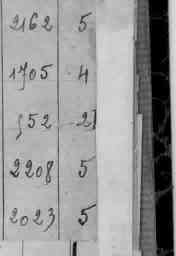 2162 5
1705 4
952 21
2208 5
2023 5